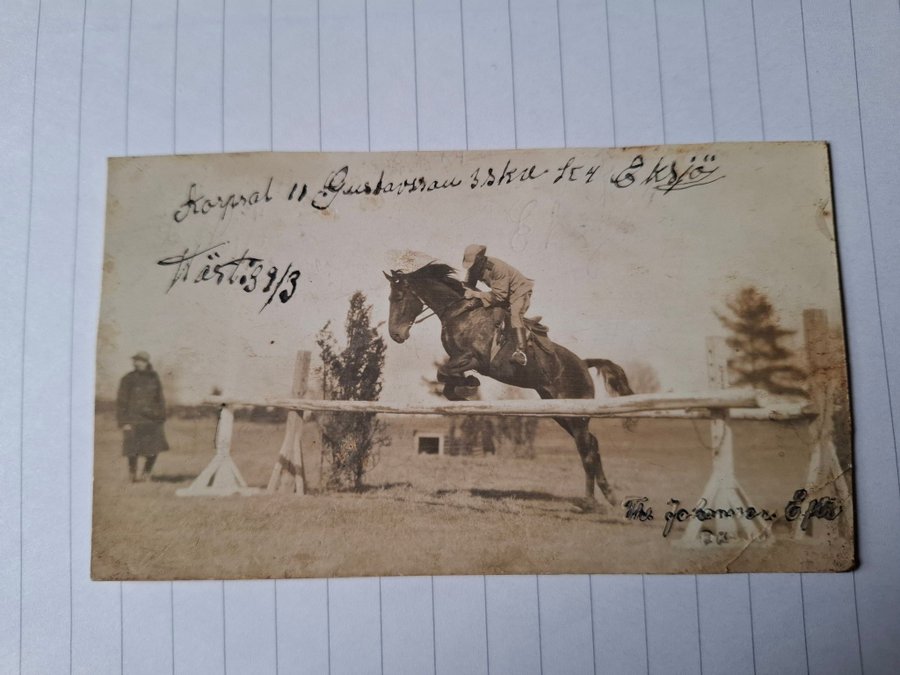 Korpral 11 Gustavsson 3 skv K4 Eksjö
Häst: 39/3
Th. Johansson Eftr